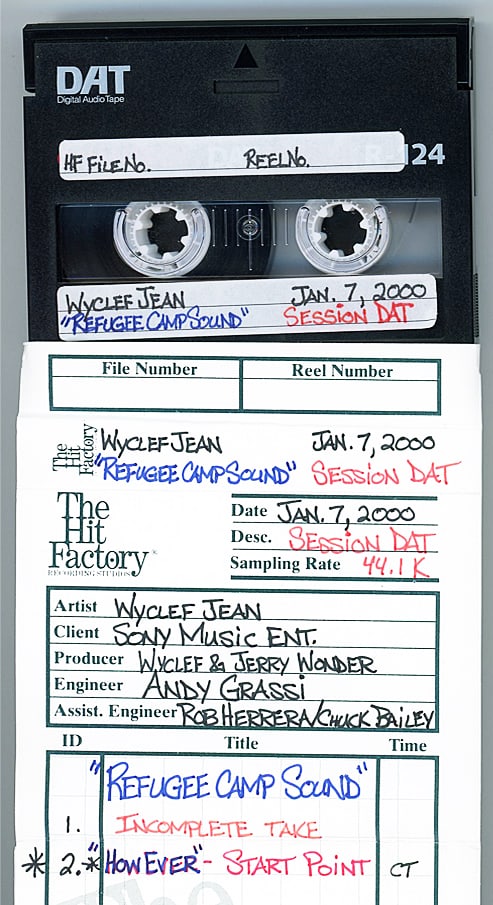 DAT
Digital Audio Tape
R-124
HF FILE NO. REEL NO.
WYCLEF JEAN JAN. 7, 2000
"REFUGEE CAMP SOUND" SESSION DAT
File Number Reel Number
The Hit Factory
WYCLEF JEAN JAN. 7, 2000
"REFUGEE CAMP SOUND" SESSION DAT
The
Hit
Factory
RECORDING STUDIOS
Date JAN. 7, 2000
Desc. SESSION DAT
Sampling Rate 44.1 K
Artist WYCLEF JEAN
Client SONY MUSIC ENT.
Producer WYCLEF & JERRY WONDER
Engineer ANDY GRASSI
Assist. Engineer ROB HERRERA/CHUCK BAILEY
ID Title Time
"REFUGEE CAMP SOUND"
1. INCOMPLETE TAKE
* 2. * "HOWEVER" - START POINT CT
The